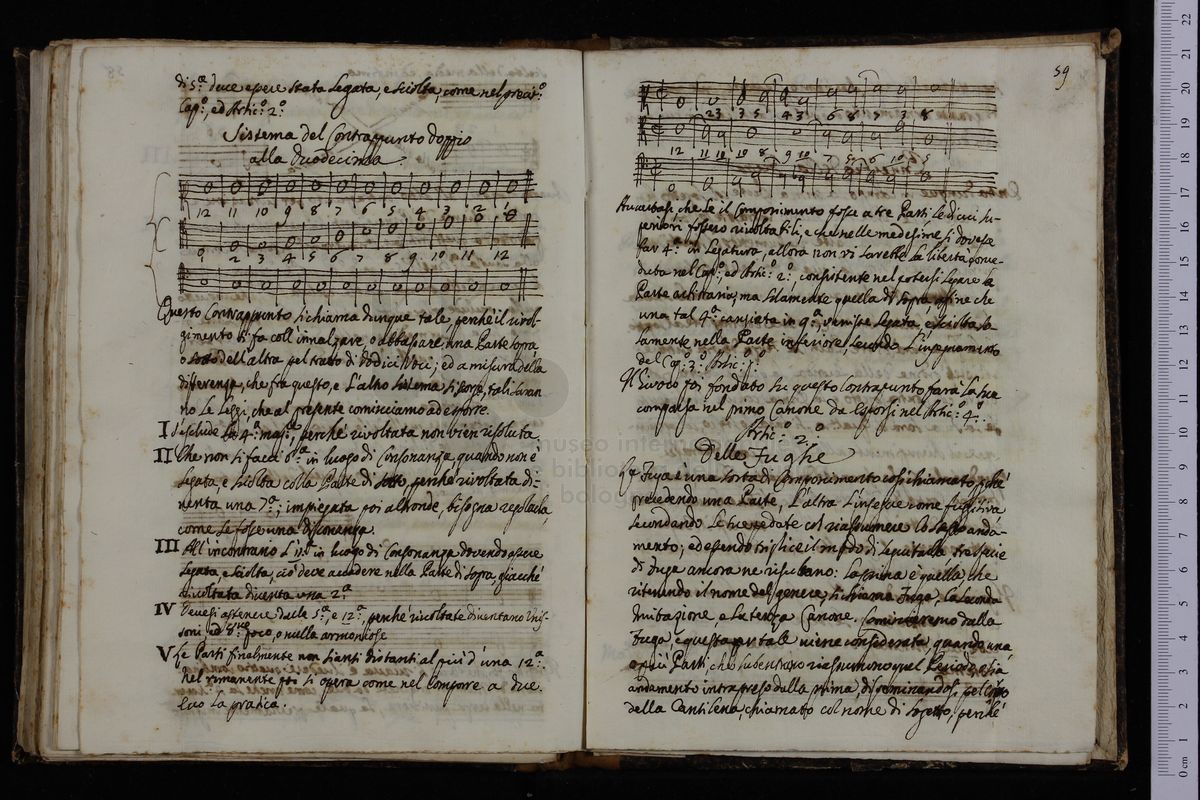 di 5.ª deve essere stata legata, e sciolta, come nel preced.º
Cap.º, ed Artic.º 2.º
Sistema del Contrappunto doppio
alla duodecima
12 11 10 9 8 7 6 5 4 3 2
2 3 4 5 6 7 8 9 10 11 12
Questo Contrappunto si chiama dunque tale, perché il rivol-
gimento si fa coll'innalzare, o abbassare una Parte sopra
o sotto dell'altra pel tratto di dodici Voci; ed a misura della
differenza, che fra questo, e l'altro sistema si scorge, tali saran-
no le Leggi, che al presente cominciamo ad esporre.
I S'esclude la 4.ª mag.e, perché rivoltata non bien risoluta
II Che non si facci 6.ª in luogo di Consonanza quando non è
legata, e sciolta colla Parte di sotto, perché rivoltata di-
venta una 7.ª; impiegata poi altronde, bisogna regolarla,
come se fosse una dissonanza.
III All'incontrario l'11.ª in luogo di Consonanza dovendo essere
legata, e sciolta, ciò deve accadere nella Parte di sopra, giacché
rivoltata diventa una 2.ª
IV Devesi astenere dalle 5.ª, e 12.ª, perché rivoltate diventano Unis-
soni, ed 8.ve poco, o nulla armoniose
V Le Parti finalmente non sianti distanti al più d'una 12.ª
nel rimanente poi si opera come nel Comporre a due.
Ecco la pratica.
59
23 3 5 4 3 6 8 7 3 8
12 11 10 10 8 9 10 7 5 6 10 5
Avvertasi che se il Componimento fosse a tre Parti le dicui su-
periori fossero rivoltabili, e che nelle medesime si dovesse
far 4.ª in Legatura, allora non vi sarebbe la libertà conce-
duta nel Cap.º, ed Artic.º 2.º, consistente nel potersi legare la
Parte arbitraria, ma solamente quella di sopra, affine che
una tal 4.ª cangiata in 9.ª, venisse legata, e sciolta so-
lamente nella Parte inferiore, secondo l'insegnamento
del Cap.º 3.º Artic.º 1.º
fondato su questo Contrapunto farà la sua
comparsa nel primo Canone da esporsi nel Artic.º 4.
Artic.º 2.º
Delle Fughe
La Fuga è una sorta di Componimento così chiamato, perché
precedendo una Parte, l'altra l'insegue come fuggitiva
secondando le sue pedate col riassumere lo stesso anda-
mento; ed essendo triplice il modo di seguitarla tre specie
di Fuga ancora ne risultano: La prima è quella, che
ritenendo il nome del genere, si chiama Fuga; La seconda
Imitazione, e La terza Canone. Cominciaremo dalla
Fuga, e questa per tale viene considerata, quando una
o più Parti che subentrano riassumono quel Periodo, ossia
andamento intrapreso dalla prima disseminandosi pel corpo
della Cantilena, chiamato col nome di Sogetto, perché